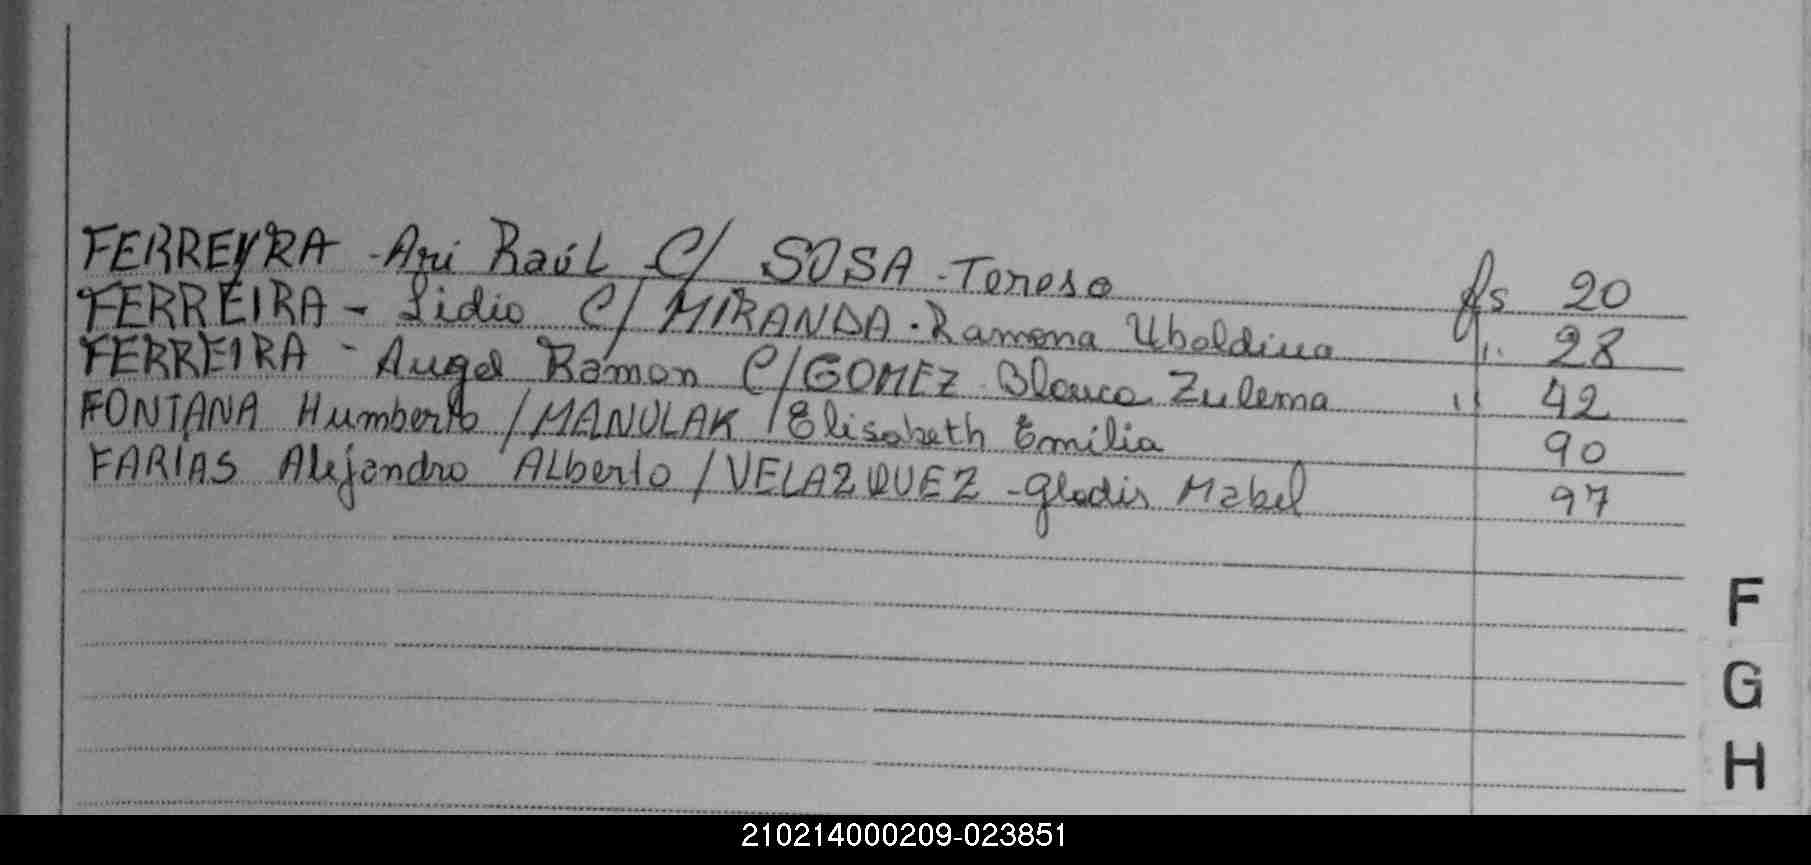 FERREYRA - Ari Raúl C/ SOSA - Teresa fs 20
FERREIRA - Lidio C/ MIRANDA - Ramona Ubaldina " 28
FERREIRA - Angel Ramon C/ GOMEZ - Blanca Zulema " 42
FONTANA Humberto / MANULAK / Elisabeth Emilia 90
FARIAS Alejandro ALberto / VELAZQUEZ - Gladis Mabel 97
F
G
H
210214000209-023851